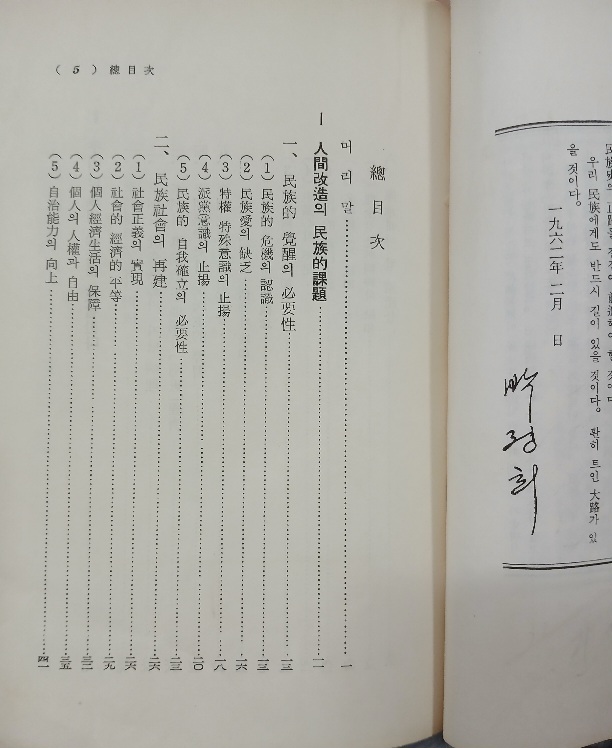 우리 民族에게도 반드시 길이 있을 것이다。 환히 트인 大路가 있
을 것이다。
一九六二年 二月 日
박정희
( 5 ) 總目次
總目次
머리말……一
I 人間改造의 民族的課題……一一
一、民族的 覺醒의 必要性……一三
(1) 民族的 危機의 認識……一三
(2) 民族愛의 缺乏……一六
(3) 特權 特殊意識의 止揚……一八
(4) 派黨意識의 止揚……二〇
(5) 民族的 自我確立의 必要性……二三
二、民族社會의 再建……二六
(1) 社會正義의 實現……二六
(2) 社會的 經濟的 平等……二九
(3) 個人經濟生活의 保障……三二
(4) 個人의 人權과 自由……三五
(5) 自治能力의 向上……四一